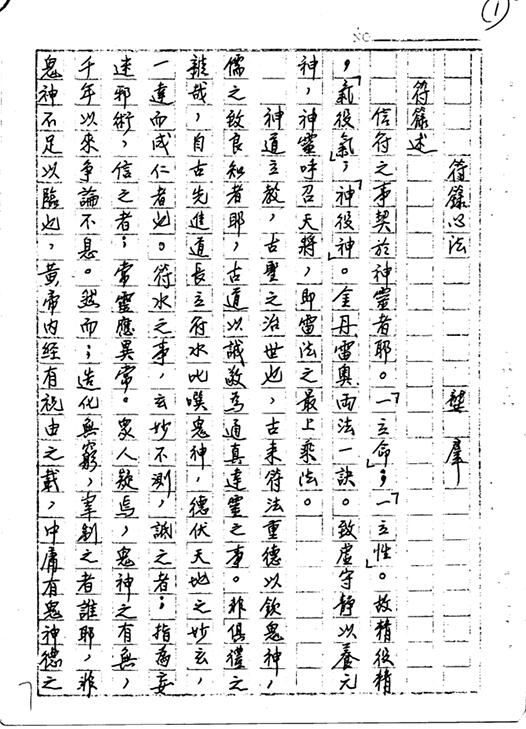 ①
NO.
符籙心法
龔 羣
符籙述
信符之事契於神靈者耶。「一立命」;「一立性」。故精役精
,「氣役氣」,「神役神」。金丹雷奧兩法一訣。致虛守靜以養元
神,神靈呼召天將,即雷法之最上乘法。
神道立教,古聖之治世也,古來符法重德以欽鬼神,
儒之致良知者耶,古道以誠敬為通真達靈之事。非俱禮之
雜哉,自古先進道長立符水叱嘆鬼神,德伏天地之妙玄,
一達而成仁者也。符水之事,玄妙不測,詆之者;指為妄
迷邪術,信之者;常靈應異常。眾人疑焉,鬼神之有無,
千年以來爭論不息。然而;造化無窮,宰制之者誰耶,非
鬼神不足以臨也,黃帝內經有祝由之載,中庸有鬼神德之